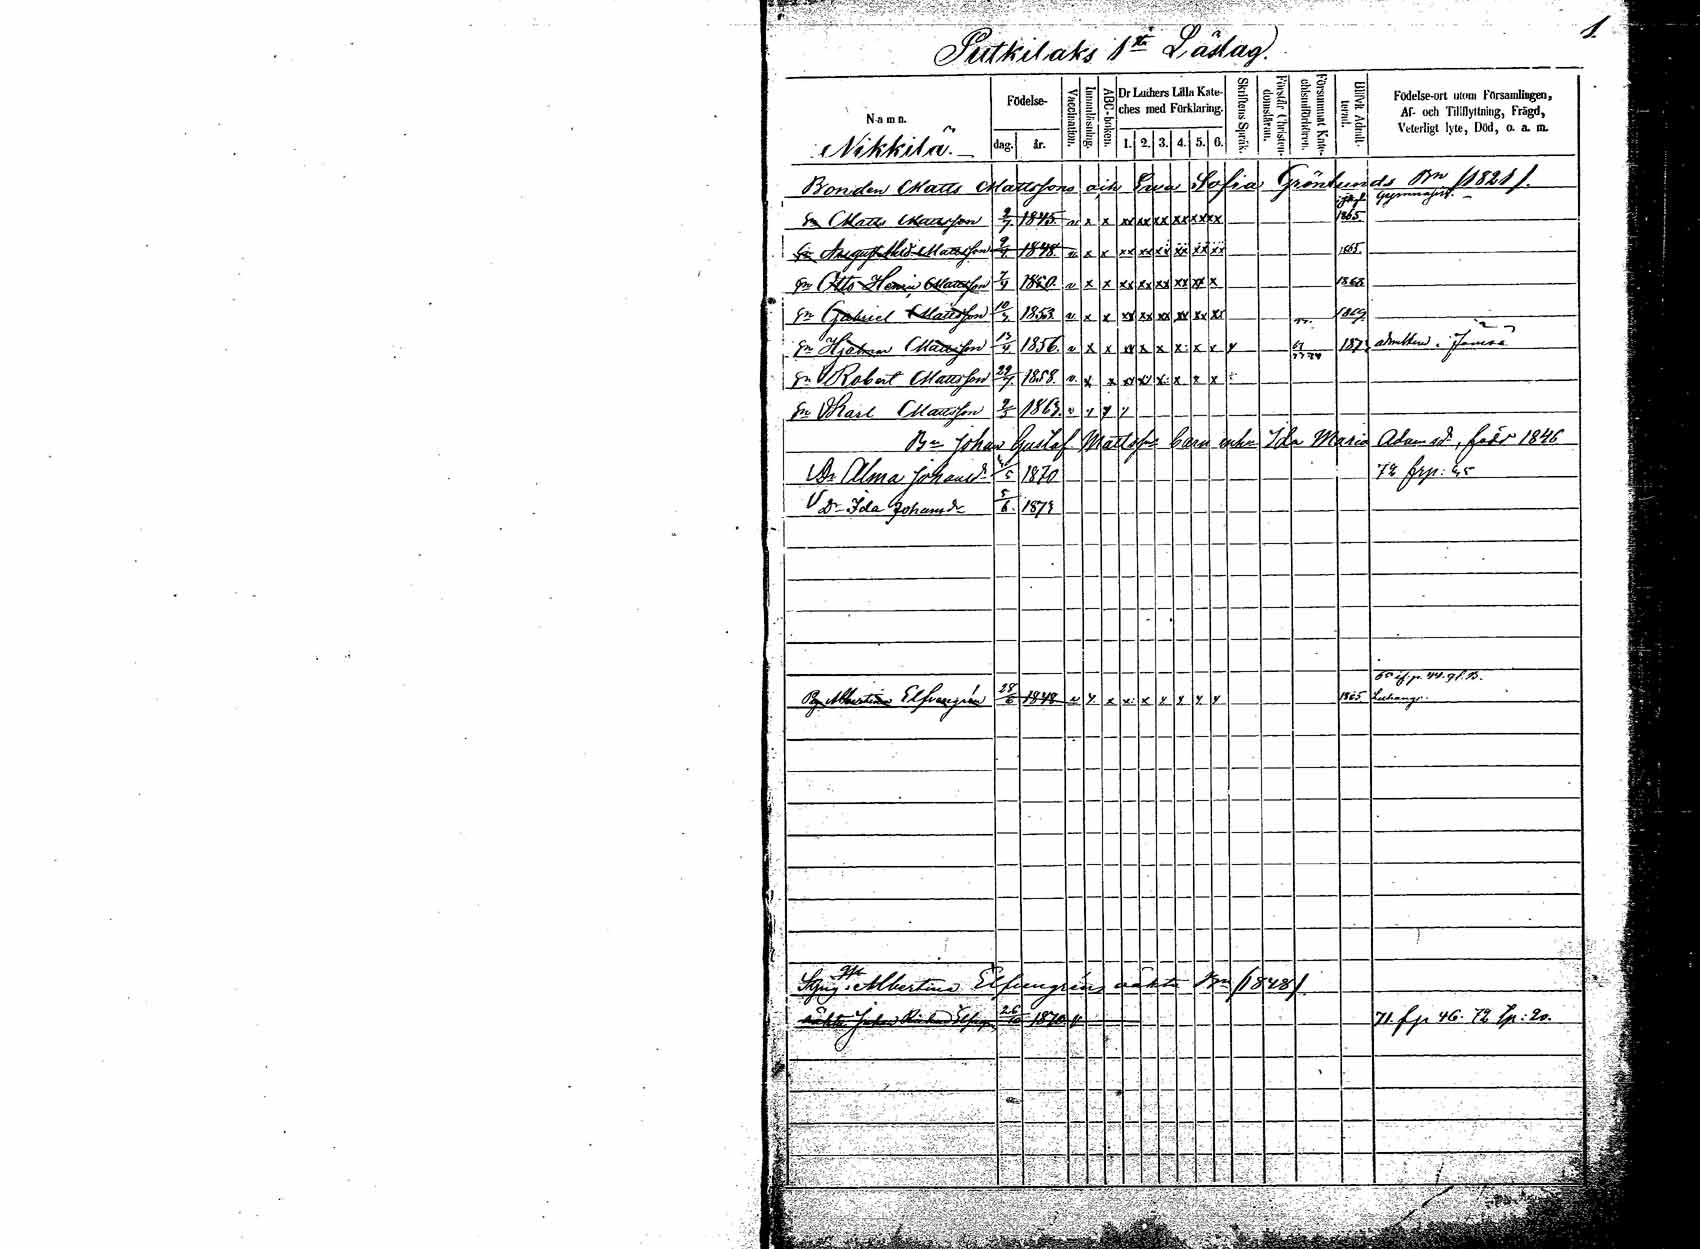 1.
Putkilaks 1sta Läslag.
Namn. Födelse- Vaccination. Innanläsning. ABC-boken. Dr Luthers Lilla Kateches med Förklaring. Skriftens Språk. Förstår Christendomsläran. Försummat Katechismiförhören. Blifvit Admitterad. Födelse-ort utom Församlingen, Af- och Tillflyttning, Frägd, Veterligt lyte, Död, o. a. m.
Nikkilä. dag. år. 1. 2. 3. 4. 5. 6.
Bonden Matts Mattssons och Eva Sofia Grönlunds Bn (1821).
Gymnasist.
Gn Matts Mattsson 2/7 1845 v x x xx xx xx xx xx xx 1865
Gn August Mattsson 2/9 1848 v x x xx xx xx xx xx xx 1865.
Gn Otto Henric Mattsson 7/4 1850 v x x xx xx xx xx xx x 1868
Gn Gabriel Mattsson 1853 v x x xx xx xx xx xx xx 1869
Gn Hjalmar Mattsson 13/4 1856. v x x xx x x x x x y 187
Gn Robert Mattsson 29/7 1858. v. x x xx xx x x x x
Gn Karl Mattsson 2/3 1863. v y y y
Bn Johan Gustaf Mattsons barn Ida Maria Adamsdr, född 1846
Dr Alma Johansdr /5 1870 72 frp: 45
Dr Ida Johansdr 5/6. 1873
p. 44. gl. B.
Pig Albertina Elfvengrén 28/6 1848 v y x x x y y y y 1865
Albertina Elfvengréns oäkta Bn (1848).
oäkta Johan Elfvengrén 26/10 1870 v 71. f p 46. 72 tp: 20.